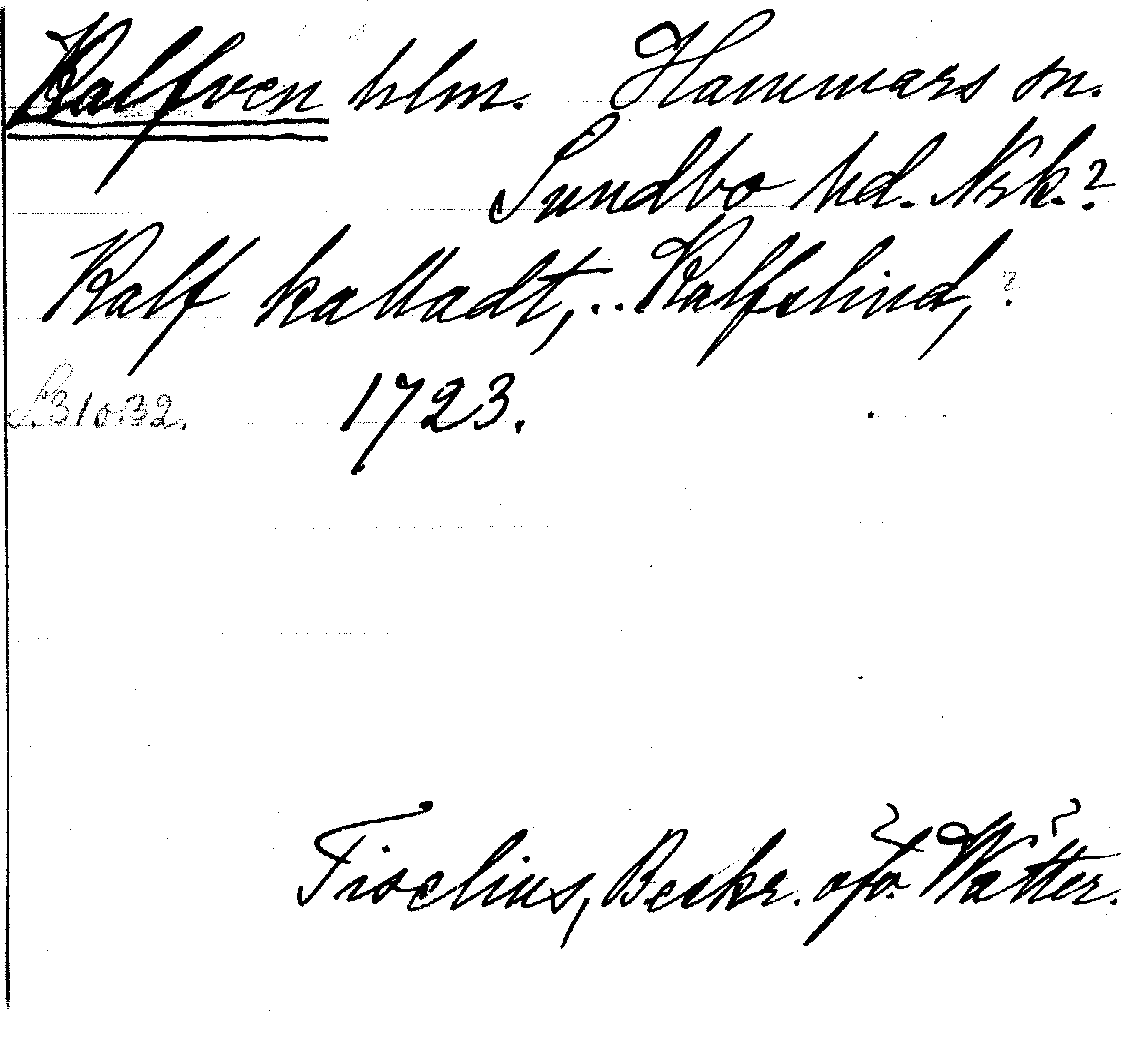 Kalfven hlm. Hammars sn.
Sundbo hd. Nrk.?
Kalf kalladt,.. Kalfslind, ?
S. 31 o. 32. 1723.
Tiselius, Beskr. öfv. Wätter.